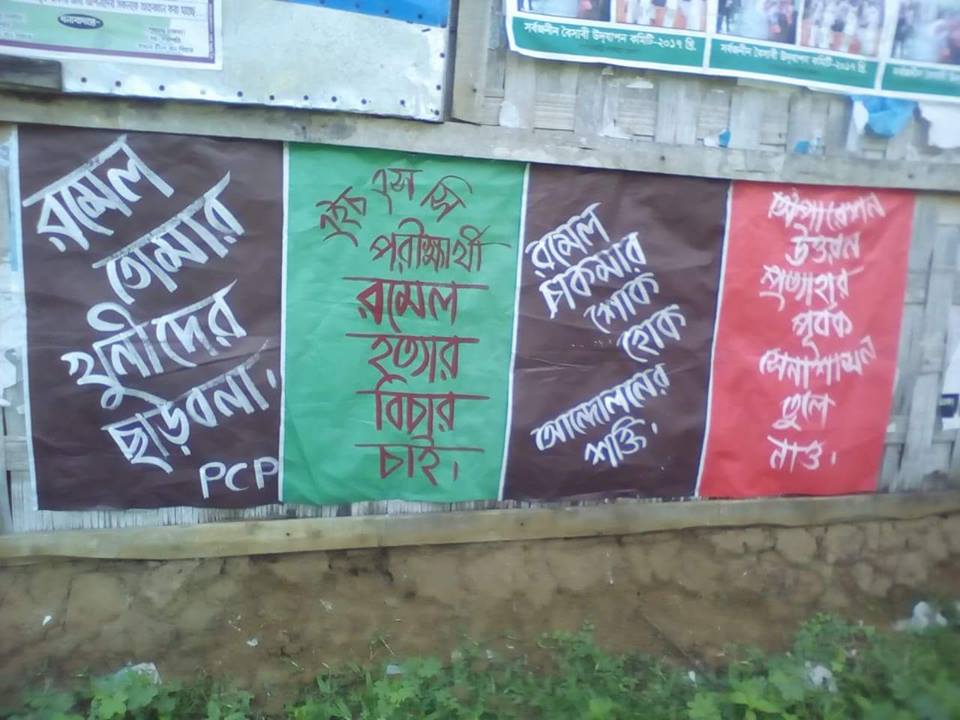 ধন্যবাদান্তে-
সর্বজনীন বৈসাবী উদযাপন কমিটি-২০১৭ খ্রি.
সর্বজনীন বৈসাবী উদযাপন কমিটি-২০১৭ খ্রি.
সর্বজনীন বৈসাবী উদযাপন
রমেল
তোমার
খুনীদের
ছাড়বনা।
PCP
এইচ এস সি
পরীক্ষার্থী
রমেল
হত্যার
বিচার
চাই।
রমেল
চাকমার
শোক
হোক
আন্দোলনের
শক্তি।
অপারেশন
উত্তরন
প্রত্যাহার
পূর্বক
সেনাশাসন
তুলে
নাও।